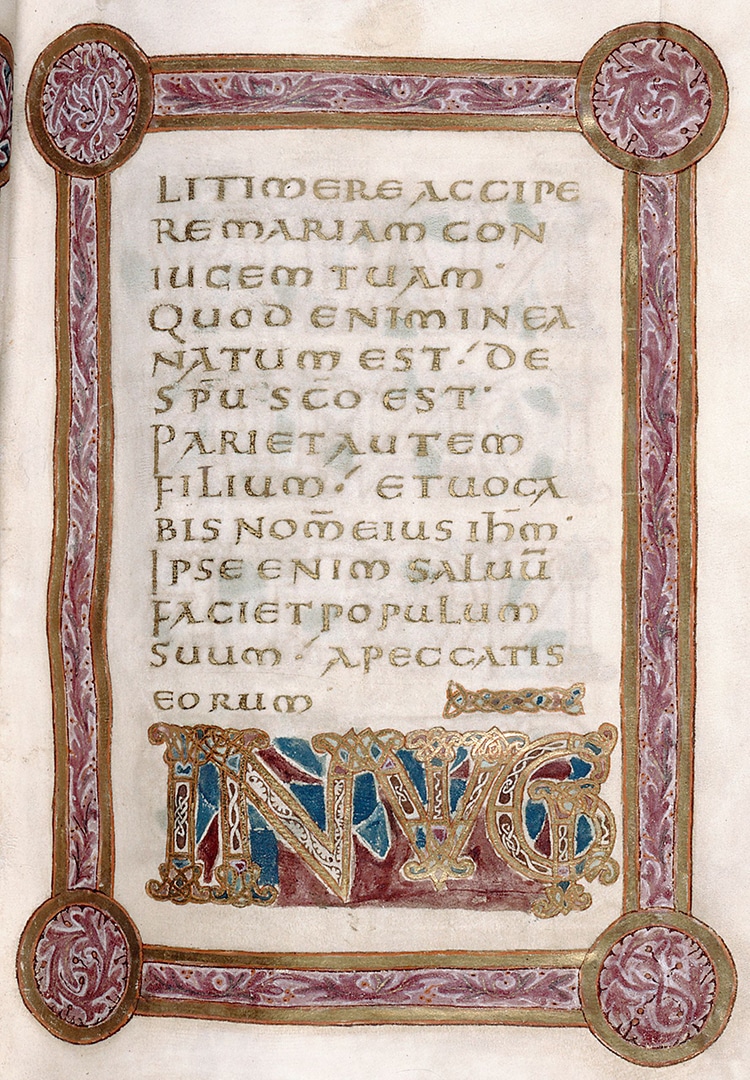 LITIMERE ACCIPE
RE MARIAM CON
IUGEM TUAM·
QUOD ENIM IN EA
NATUM EST·́ DE
SP̄U SC̄O EST·
PARIET AUTEM
FILIUM·́ ET UOCA
BIS NOM̄ EIUS IH̄M·
IPSE ENIM SALUŪ
FACIET POPULUM
SUUM·́ A PECCATIS
EORUM
IN VIG